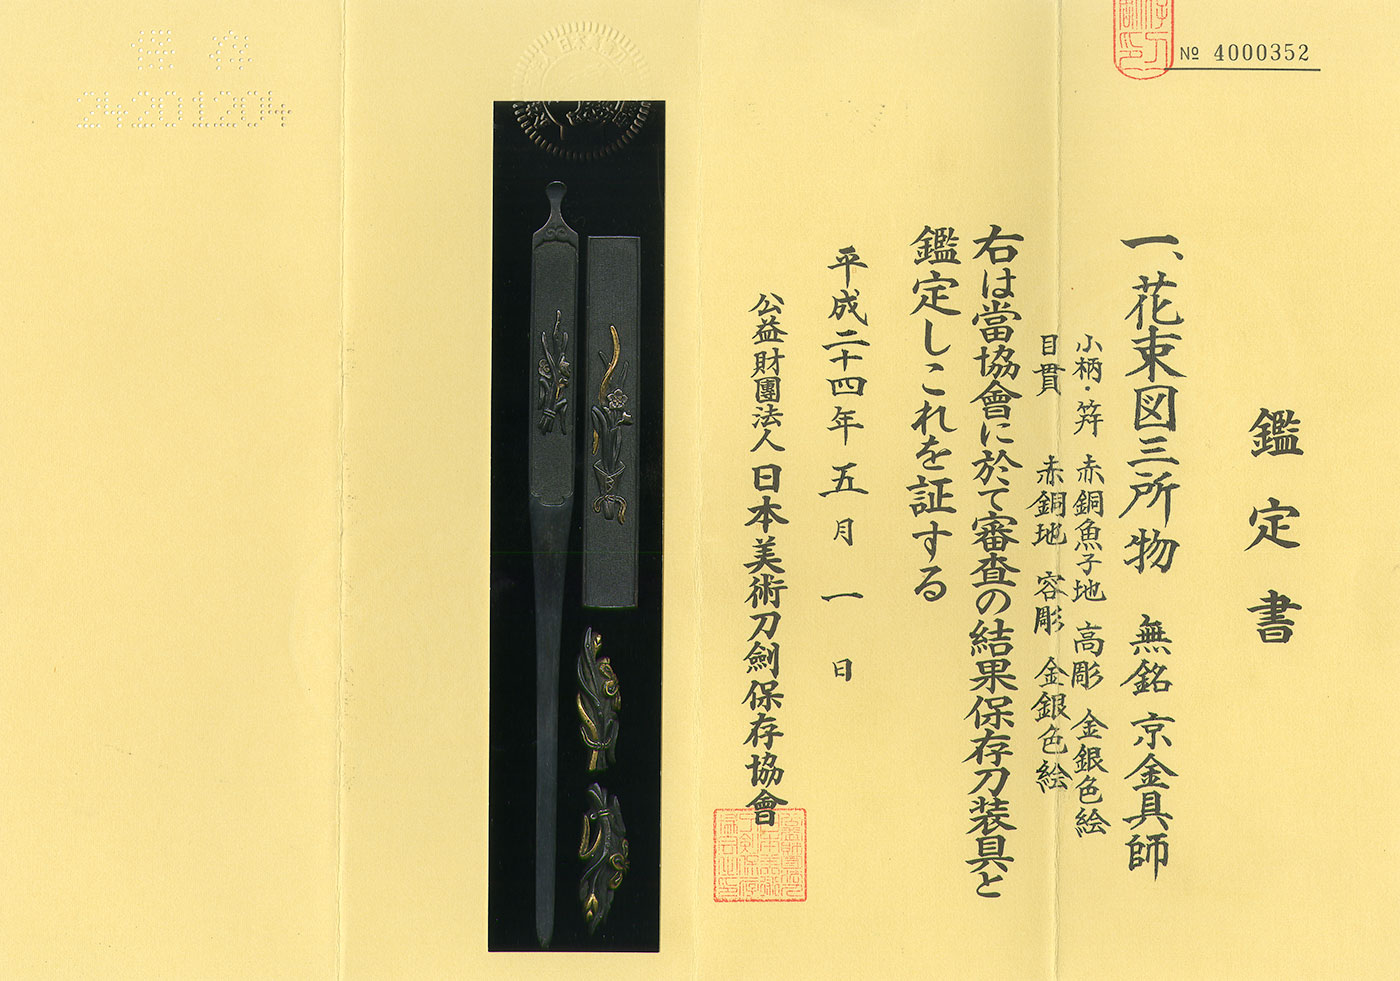 № 4000352
鑑定書
一、花束図三所物 無銘 京金具師
小柄・笄 赤銅魚子地 高彫 金銀色絵
目貫 赤銅地 容彫 金銀色絵
右は當協會に於て審査の結果保存刀装具と
鑑定しこれを証する
平成二十四年五月一日
公益財團法人 日本美術刀劍保存協會
保存
24201204